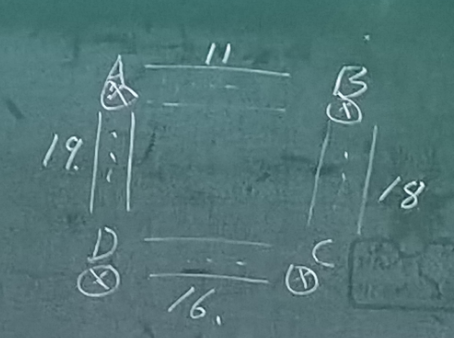 11
A B
19.
18
D C
16.